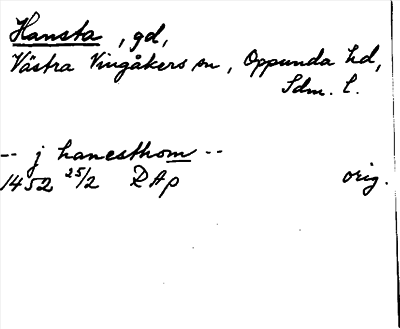 Hansta, gd,
Västra Vingåkers sn, Oppunda hd,
Sdm. l.
-- j hanesthom --
1452 25/2 RAp orig.